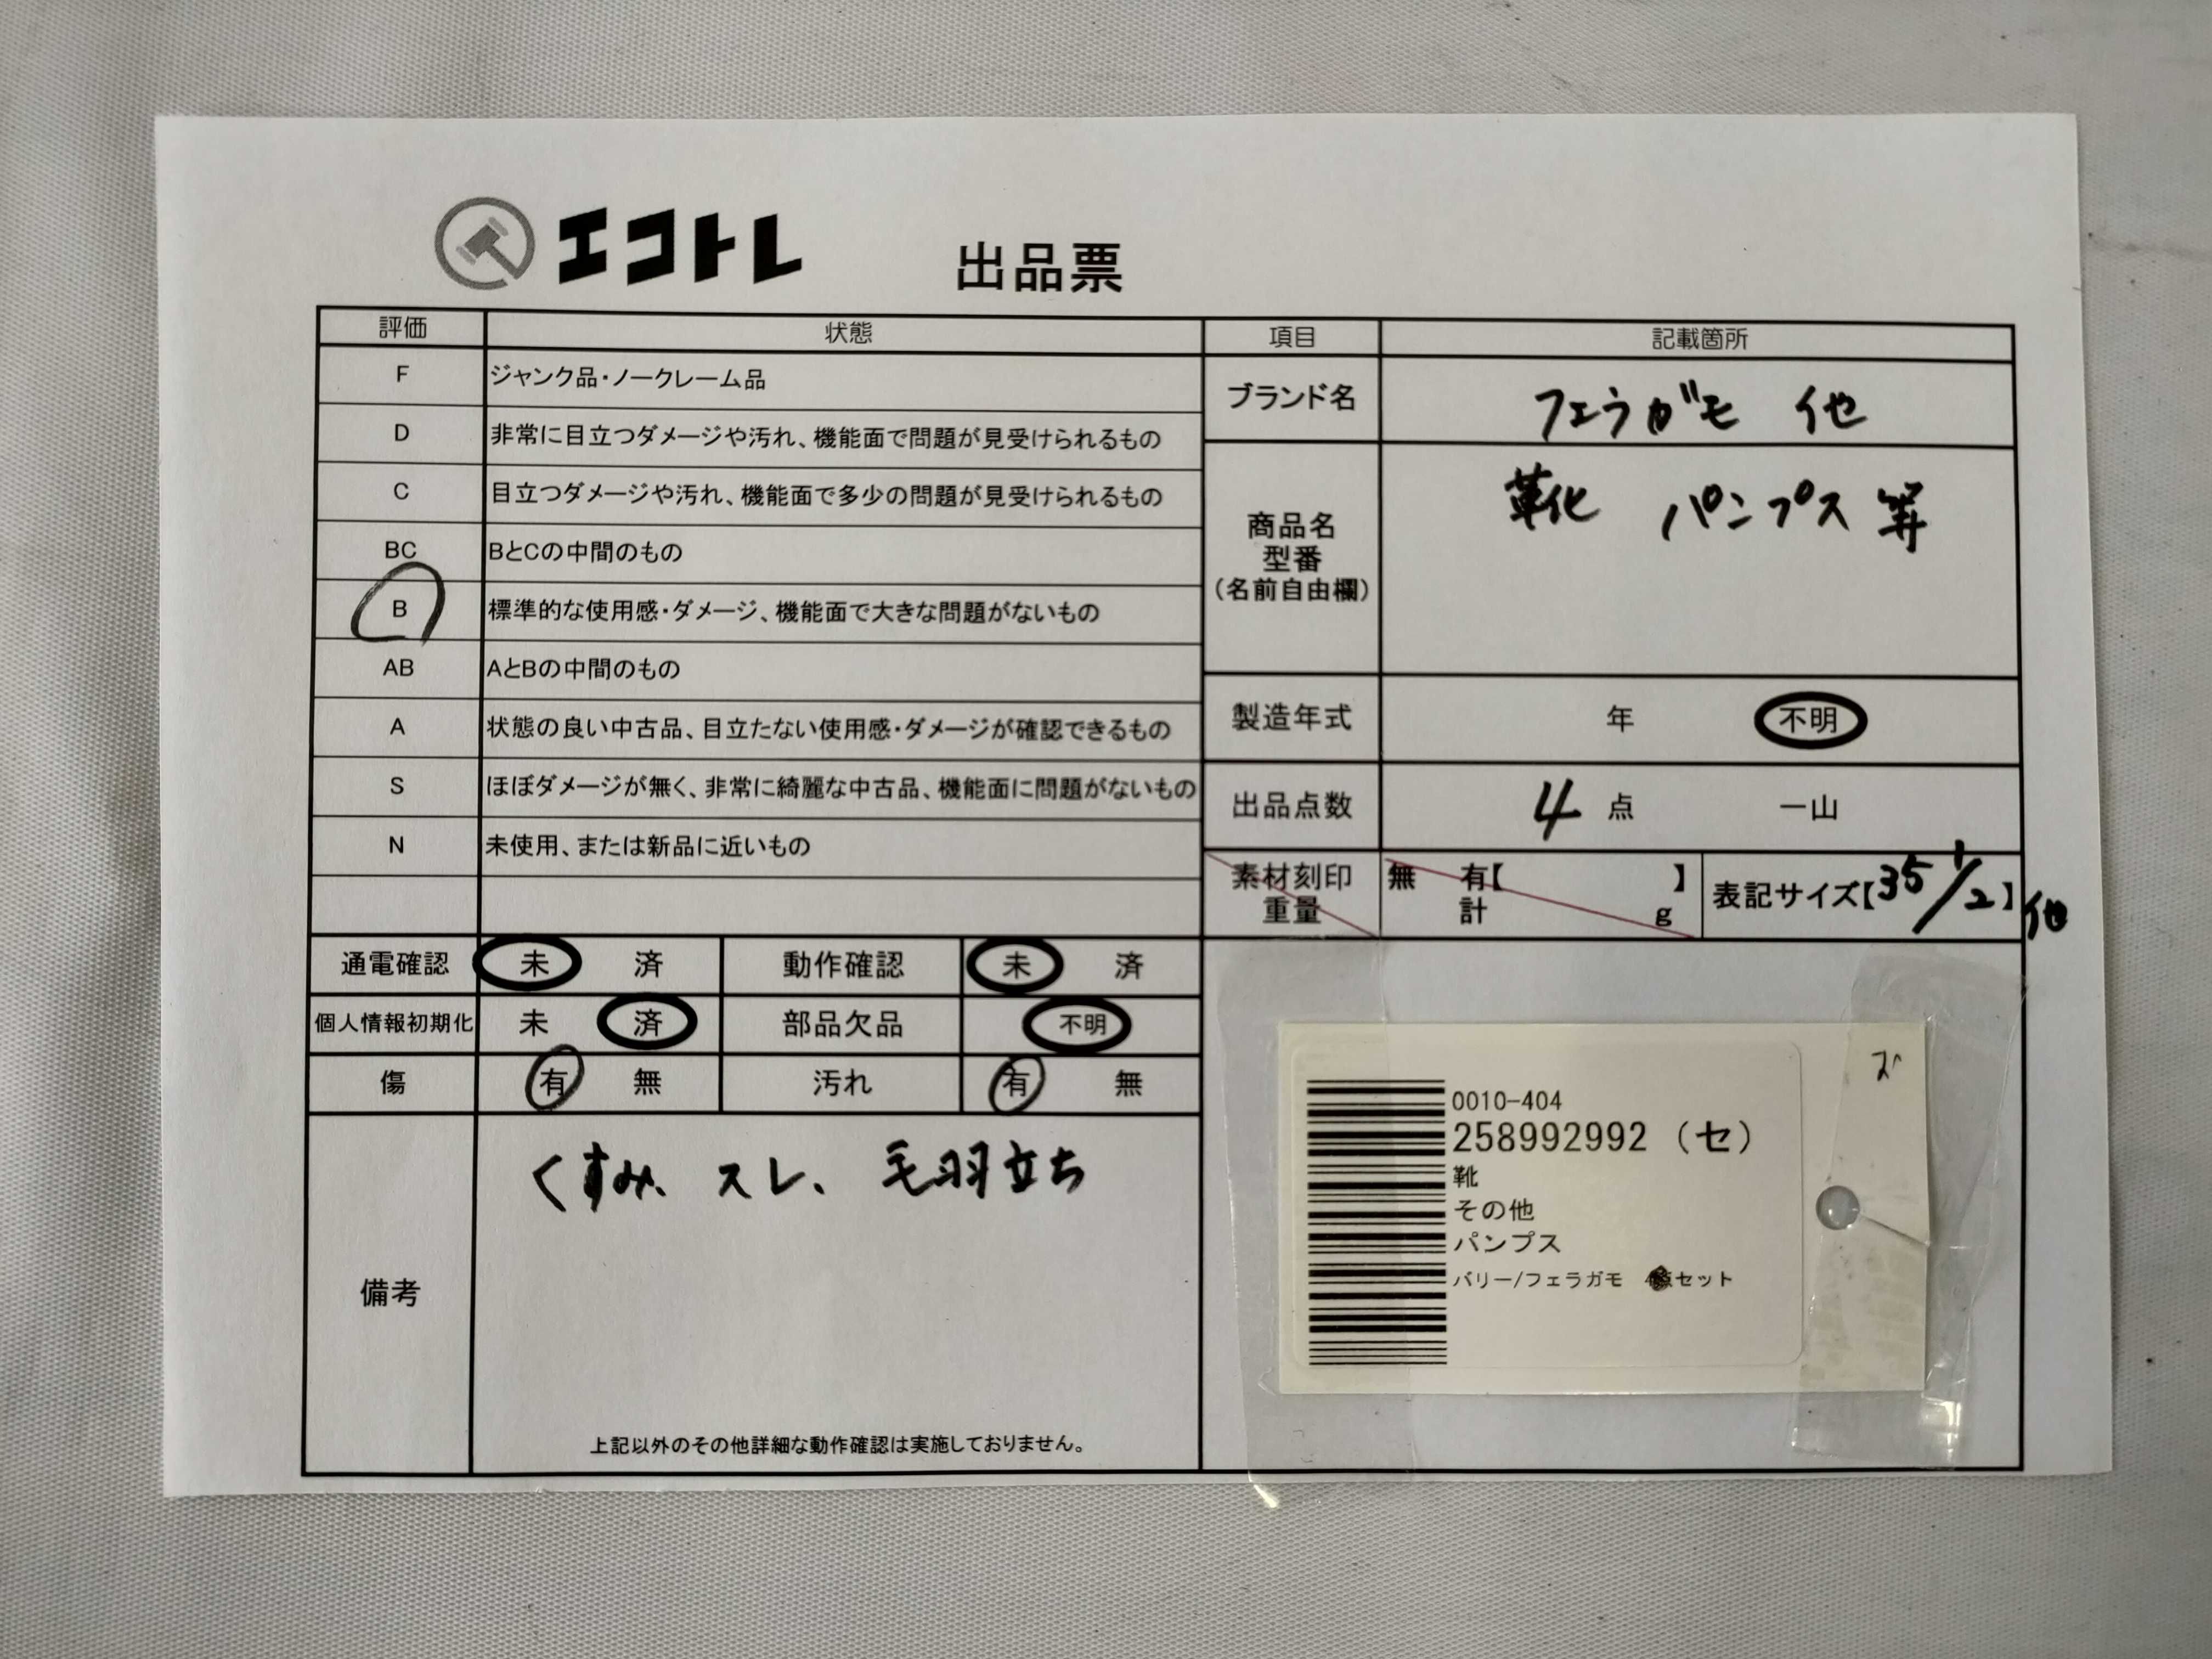 エコトレ 出品票
評価 状態
F ジャンク品・ノークレーム品
D 非常に目立つダメージや汚れ、機能面で問題が見受けられるもの
C 目立つダメージや汚れ、機能面で多少の問題が見受けられるもの
BC BとCの中間のもの
B 標準的な使用感・ダメージ、機能面で大きな問題がないもの
AB AとBの中間のもの
A 状態の良い中古品、目立たない使用感・ダメージが確認できるもの
S ほぼダメージが無く、非常に綺麗な中古品、機能面に問題がないもの
N 未使用、または新品に近いもの
項目 記載箇所
ブランド名 フェラガモ 他
商品名
型番
(名前自由欄)
靴 パンプス 等
製造年式 年 不明
出品点数 4 点 一山
素材刻印
重量
無 有【 】
計 g
表記サイズ【35 1/2】他
通電確認 未 済 動作確認 未 済
個人情報初期化 未 済 部品欠品 不明
傷 有 無 汚れ 有 無
備考
くすみ、スレ、毛羽立ち
上記以外のその他詳細な動作確認は実施しておりません。
0010-404
258992992 (セ)
靴
その他
パンプス
バリー/フェラガモ セット